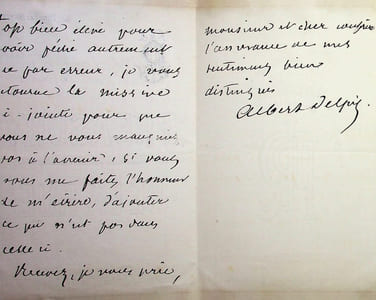 top bien élevé pour
avoir péché autrement
que par erreur, je vous
tourne la missive
ci-jointe pour que
vous ne vous manquiez
pas à l'avenir, si vous
vous me faites l'honneur
de m'écrire, d'ajouter
ce qui n'est pas dans
celle ci.
Recevez, je vous prie,
monsieur et cher confrère
l'assurance de mes
sentiments bien
distingués
Albert Delpit.